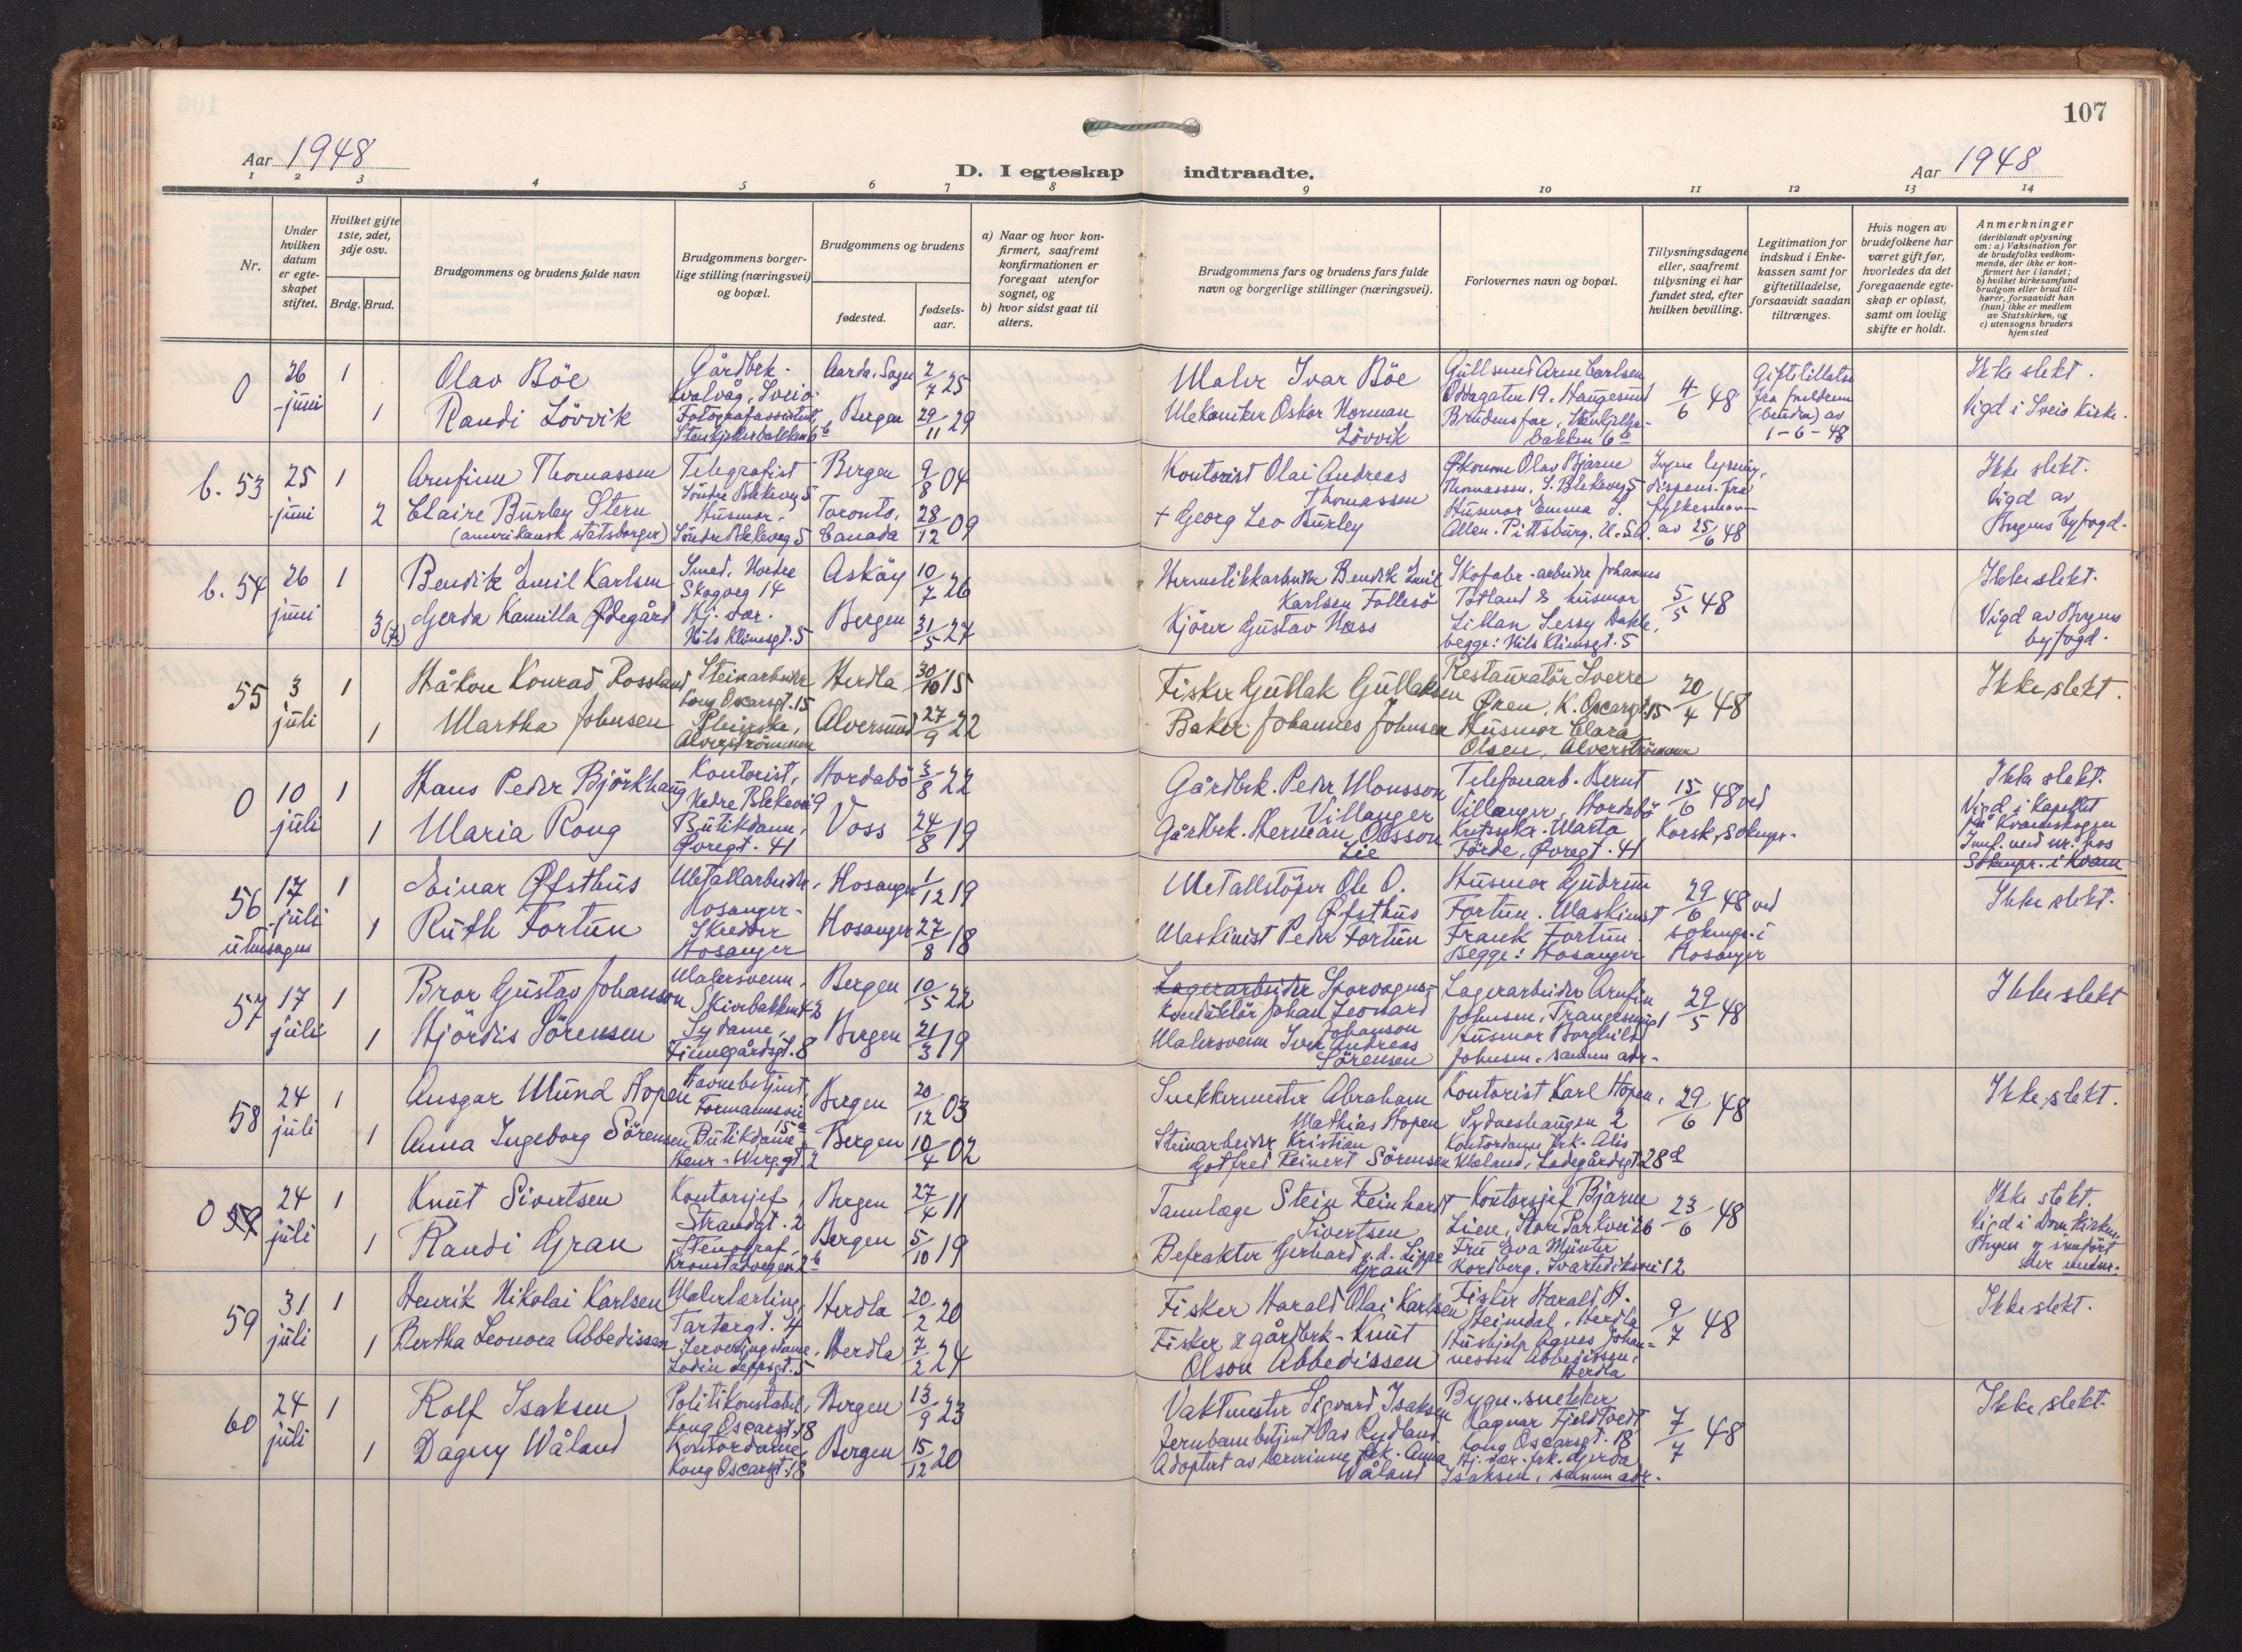 107
Aar 1948
D. I egteskap indtraadte.
Aar 1948
1 2 3 4 5 6 7 8 9 10 11 12 13 14
Nr.
Under hvilken datum er egteskapet stiftet.
Hvilket gifte 1ste, 2det, 3dje osv.
Brdg. Brud.
Brudgommens og brudens fulde navn
Brudgommens borgerlige stilling (næringsvei) og bopæl.
Brudgommens og brudens
fødested.
fødsels-aar.
a) Naar og hvor konfirmert, saafremt konfirmationen er foregaat utenfor sognet, og
b) hvor sidst gaat til alters.
Brudgommens fars og brudens fars fulde navn og borgerlige stillinger (næringsvei).
Forlovernes navn og bopæl.
Tillysningsdagene eller, saafremt tillysning ei har fundet sted, efter hvilken bevilling.
Legitimation for indskud i Enkekassen samt for giftetilladelse, forsaavidt saadan tiltrænges.
Hvis nogen av brudefolkene har været gift før, hvorledes da det foregaaende egteskap er opløst, samt om lovlig skifte er holdt.
Anmerkninger
(deriblandt oplysning om: a) Vaksination for de brudefolks vedkommende, der ikke er konfirmert her i landet; b) hvilket kirkesamfund brudgom eller brud tilhører, forsaavidt han (hun) ikke er medlem av Statskirken, og c) utensogns bruders hjemsted
0 26 juni 1 Olav Böe Gårdbrk. Kvalvåg, Sveio. Aarda, Sogn 2/7 25 Maler Ivar Böe Gullsmed Arne Carlsen Oddagaten 19. Haugesund 4/6 48 Giftetillatn. fra foreldrene (bruden) av 1-6-48 Ikke slekt.
1 Randi Lövvik Fotografassistent Bergen 29/11 29 Mekaniker Oskar Norman Lövvik Brudens far, Vigd i Sveio kirke.
b. 53 25 juni 1 Arnfinn Thomassen Telegrafist Söndre Blekevg 5 Bergen 9/8 04 Kontorist Olai Andreas Thomassen Økonom Olav Bjarne Thomassen, S. Blekevg 5 Ingen lysning, dispens. fra fylkesmannen av 25/6 48 Ikke slekt.
2 Claire Burley Stern (amerikansk statsborger) Husmor, Söndre Blekeveg 5 Toronto, Canada 28/12 09 + Georg Leo Burley Husmor Emma J. Allen. Pittsburg. U.S.A. Vigd av Bergens byfogd.
b. 54 26 juni 1 Bendik Emil Karlsen Smed. Nordre Skogveg 14 Asköy 10/7 26 Hermetikkarbeider Bendik Emil Karlsen Follesö Skofabr.-arbeider Johannes Totland & husmor 5/5 48 Ikke slekt.
3 Gjerda Kamilla Ødegård Hj. dar. Nils Klimsgt. 5 Bergen 31/5 27 Kjörer Gustav Næss Lillan Sessy Dahle, begge: Nils Klimsgt. 5 Vigd av Bergens byfogd.
55 3 juli 1 Håkon Konrad Rossland Steinarbeider Kong Oscarsgt. 15 Herdla 30/10 15 Fisker Gullak Gullaksen Restauratör Sverre Øren, K. Oscarsgt. 15 20/4 48 Ikke slekt.
1 Martha Johnsen Pleierske, Alverströmmen Alversund 27/9 22 Baker Johannes Johnsen Husmor Clara Olsen, Alverströmmen
0 10 juli 1 Hans Peder Björkhaug Kontorist, Nedre Blekevei 9 Hordabö 3/8 22 Gårdbrk. Peder Monsson Villanger Telefonarb. Bernt Villanger, Hordabö 15/6 48 ved Ikke slekt.
1 Maria Rong Butikdame, Øvregt. 41 Voss 24/8 19 Gårdbrk. Herman Olsson Lie Marta Förde, Øvregt. 41 Korsk. soknepr. Vigd i Kapellet på Kvamskogen Innf. med nr. hos Soknepr. i Kvam
56 utensogns 17 juli 1 Einar Øfsthus Metallarbeider, Hosanger Hosanger 1/12 19 Metallstöper Ole O. Øfsthus Husmor Gudrun Fortun. Maskinist 29/6 48 ved Ikke slekt.
1 Ruth Fortun Skredder Hosanger Hosanger 27/8 18 Maskinist Peder Fortun Frank Fortun. Begge: Hosanger soknepr. i Hosanger
57 17 juli 1 Bror Gustav Johanson Malersvenn, Skivebakken 42 Bergen 10/5 22 Lagerarbeider Sporvogns-Konduktör Johan Leonard Johanson Lagerarbeider Arnfin Johnsen, Trangesmug 1 29/5 48 Ikke slekt
1 Hjördis Sörensen Sydame, Finnegårdsgt. 8 Bergen 21/3 19 Malersvenn Iver Andreas Sörensen Husmor Borghild Johnsen. samme adr.
58 24 juli 1 Ansgar Mund Hopen Havnebetjent, Formannsvei 15a Bergen 20/12 03 Snekkermester Abraham Mathias Hopen Kontorist Karl Hopen, Sydneshaugen 2 29/6 48 Ikke slekt.
1 Anna Ingeborg Sörensen Butikdame, Henr. Werg.gt. 2 Bergen 10/4 02 Steinarbeider Kristian Gotfred Reinert Sörensen Kontordame frk. Alis Mæland, Ladegårdsgt 28d
0 59 24 juli 1 Knut Sivertsen Kontorsjef, Strandgt. 2 Bergen 27/4 11 Tannlæge Stein Reinhardt Sivertsen Kontorsjef Bjarne Lien, Store Parkvei 26 23/6 48 Ikke slekt.
1 Randi Gran Stenograf, Kronstadvegen 2b Bergen 5/10 19 Befrakter Gerhard v.d. Lippe Gran Fru Eva Münter Kordberg. Svartediksvei 12 Vigd i Domkirken, Bergen og innfört der
59 31 juli 1 Henrik Nikolai Karlsen Malerlærling, Tartargt. 4 Herdla 20/2 20 Fisker Harald Olai Karlsen Fisker Harald H. Heimdal, Herdla 9/7 48 Ikke slekt.
1 Bertha Leonora Abbedissen Serveringsdame, Lodin Leppsgt. 5 Herdla 7/2 24 Fisker & gårdbrk. Knut Olson Abbedissen Hushjelp Agnes Johannessen Abbedissen, Herdla
60 24 juli 1 Rolf Isaksen Politikonstabel, Kong Oscarsgt. 18 Bergen 13/9 23 Vaktmester Sigvard Isaksen Bygn. snekker Ragnar Fjeldtvedt, Kong Oscarsgt. 18 7/7 48 Ikke slekt.
1 Dagny Wåland Kontordame, Kong Oscarsgt. 18 Bergen 15/12 20 Jernbanebetjent Oas Rydland Adoptert av lærerinne frk. Anna Wåland Hj. dar. frk. Gerda Isaksen, samme adr.